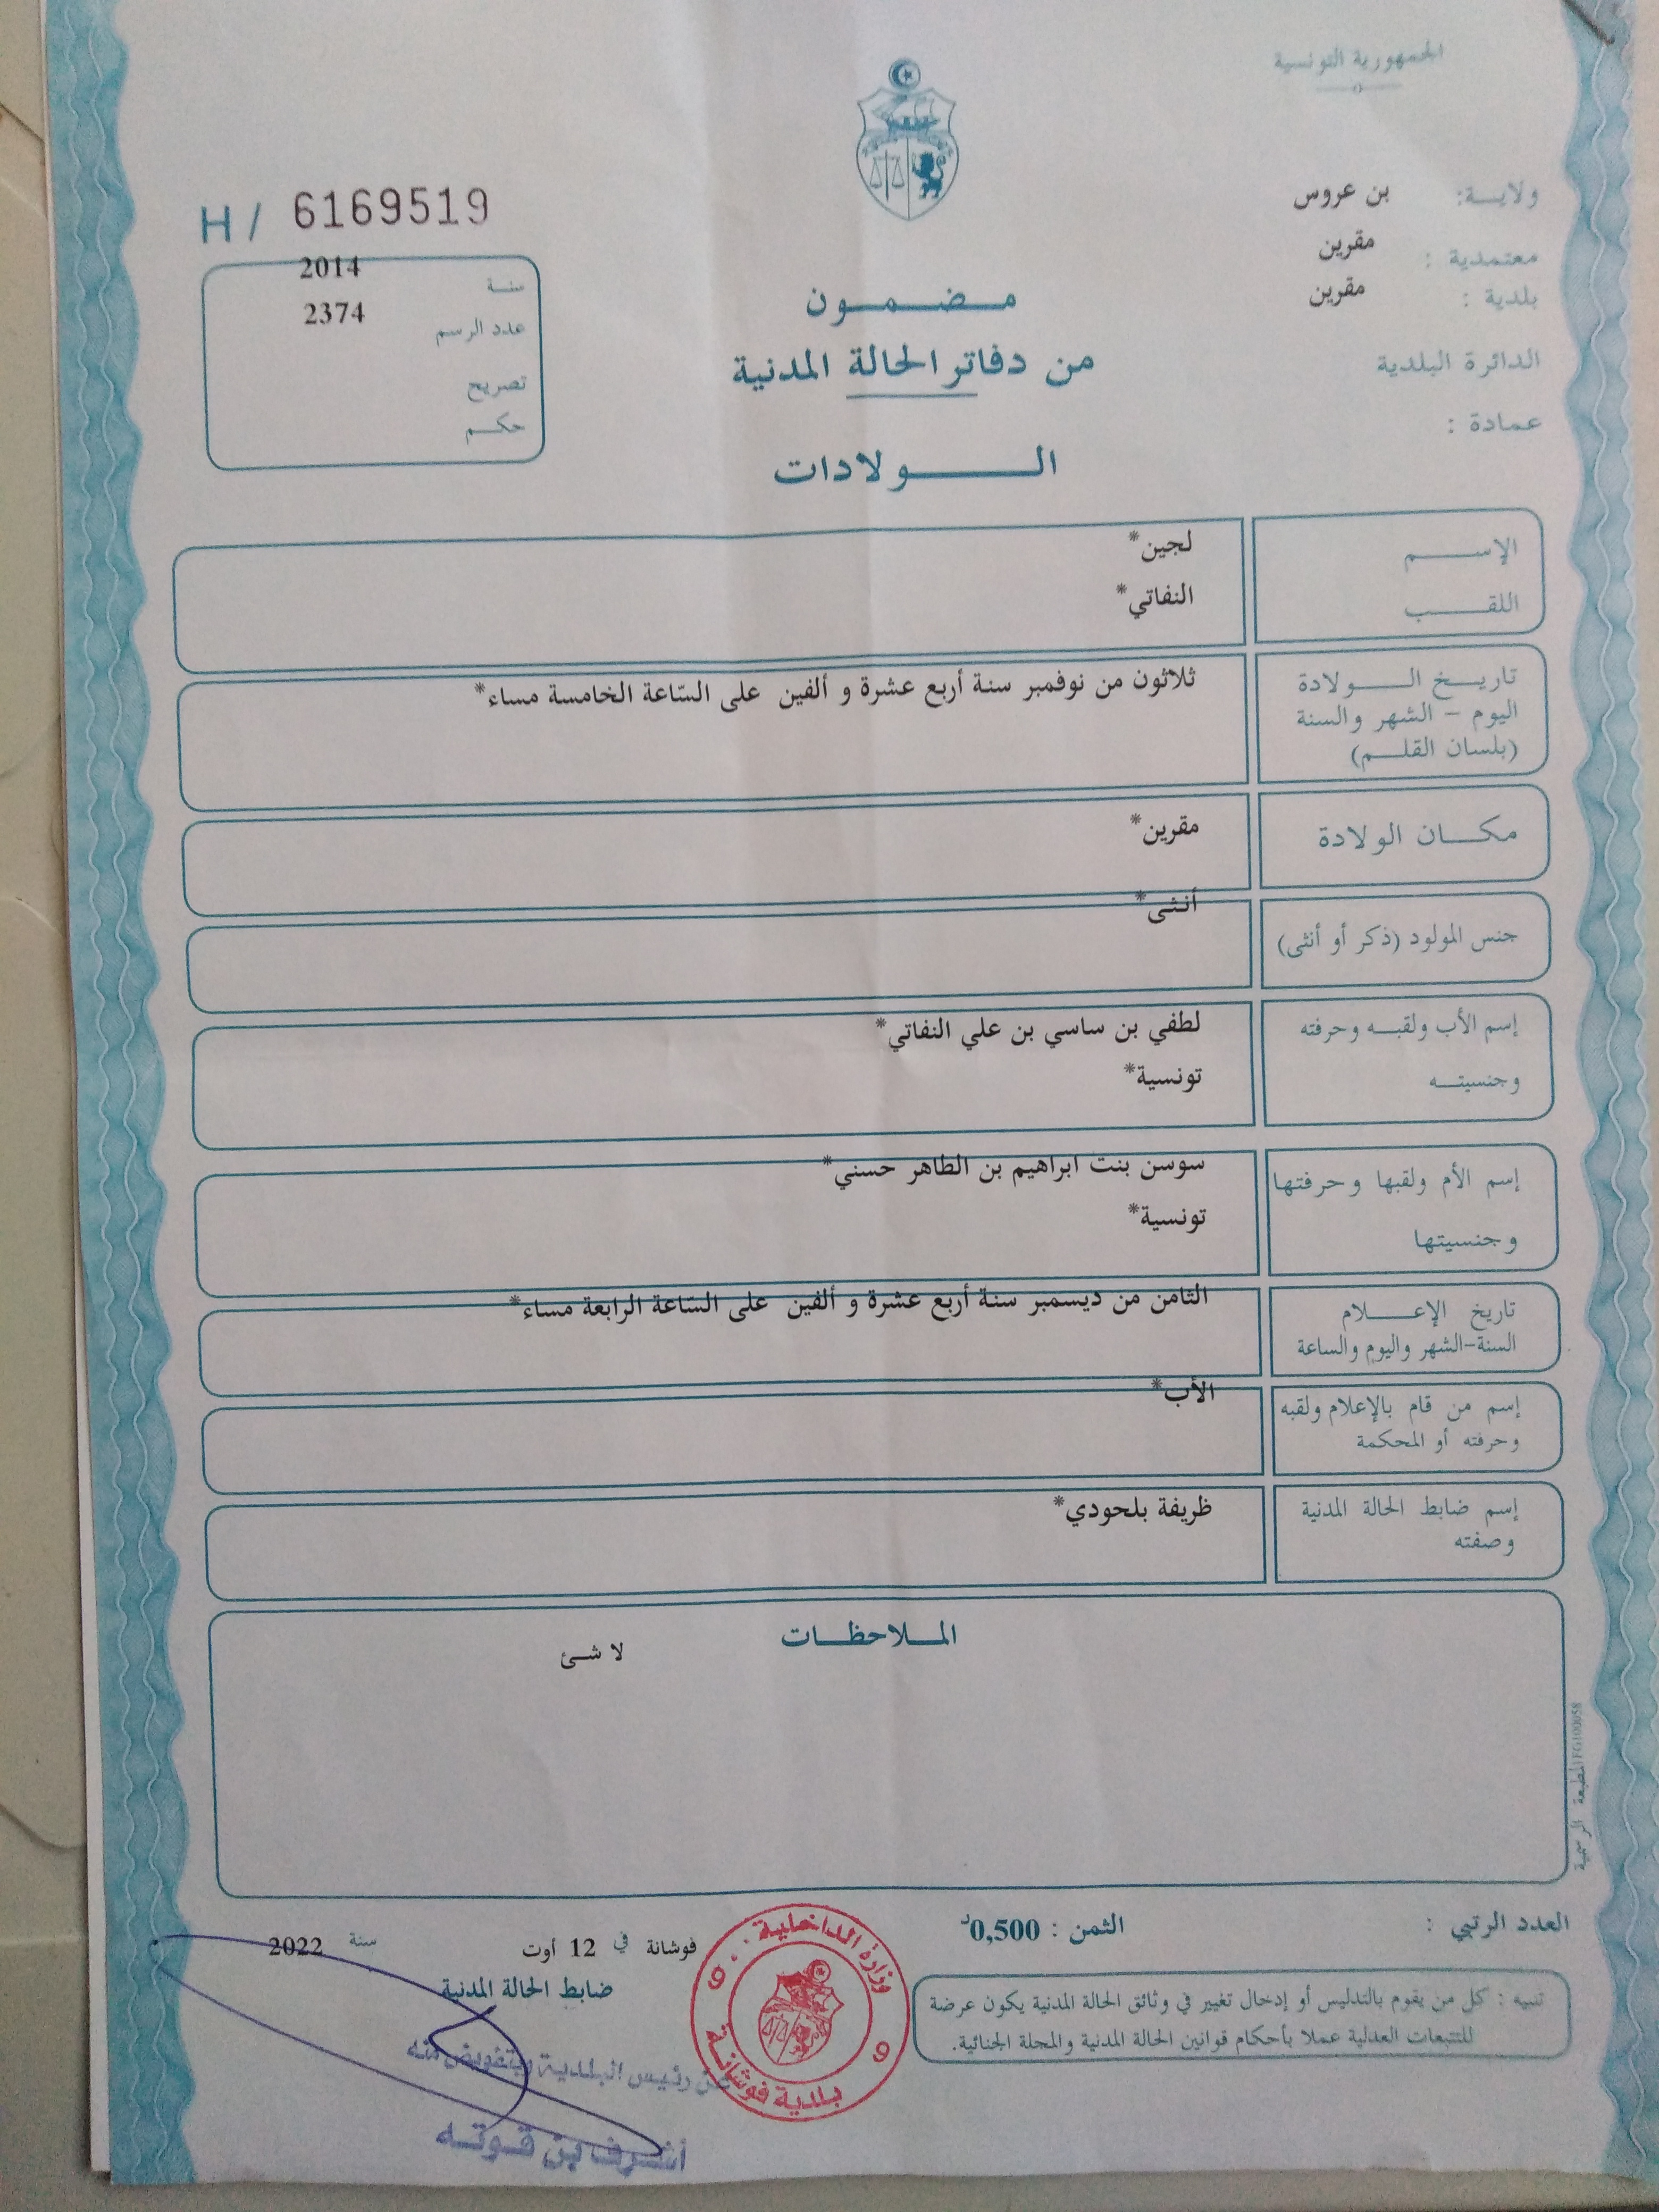 الجمهورية التونسية
ولايــة: بن عروس
معتمدية : مقرين
بلدية : مقرين
الدائرة البلدية
عمادة :
H / 6169519
سنة 2014
عدد الرسم 2374
تصريح
حكم
مضمون
من دفاتر الحالة المدنية
الولادات
الإسم لجين*
اللقب النفاتي*
تاريخ الولادة
اليوم - الشهر والسنة
(بلسان القلم)
ثلاثون من نوفمبر سنة أربع عشرة و ألفين على السّاعة الخامسة مساء*
مكان الولادة مقرين*
جنس المولود (ذكر أو أنثى) أنثى*
إسم الأب ولقبه وحرفته لطفي بن ساسي بن علي النفاتي*
وجنسيته تونسية*
إسم الأم ولقبها وحرفتها سوسن بنت ابراهيم بن الطاهر حسني*
وجنسيتها تونسية*
تاريخ الإعلام
السنة-الشهر واليوم والساعة
الثامن من ديسمبر سنة أربع عشرة و ألفين على السّاعة الرابعة مساء*
إسم من قام بالإعلام ولقبه
وحرفته أو المحكمة
الأب*
إسم ضابط الحالة المدنية
وصفته
ظريفة بلحودي*
الملاحظات
لا شئ
المطبعة الرسمية FG100058
العدد الرتبي :
الثمن : 0,500د
فوشانة في 12 أوت سنة 2022
ضابط الحالة المدنية
تنبيه : كل من يقوم بالتدليس أو إدخال تغيير في وثائق الحالة المدنية يكون عرضة
للتتبعات العدلية عملا بأحكام قوانين الحالة المدنية والمجلة الجنائية.
وزارة الداخلية
بلدية فوشانة
9
9
عن رئيس البلدية وبتفويض منه
أشرف بن قوته